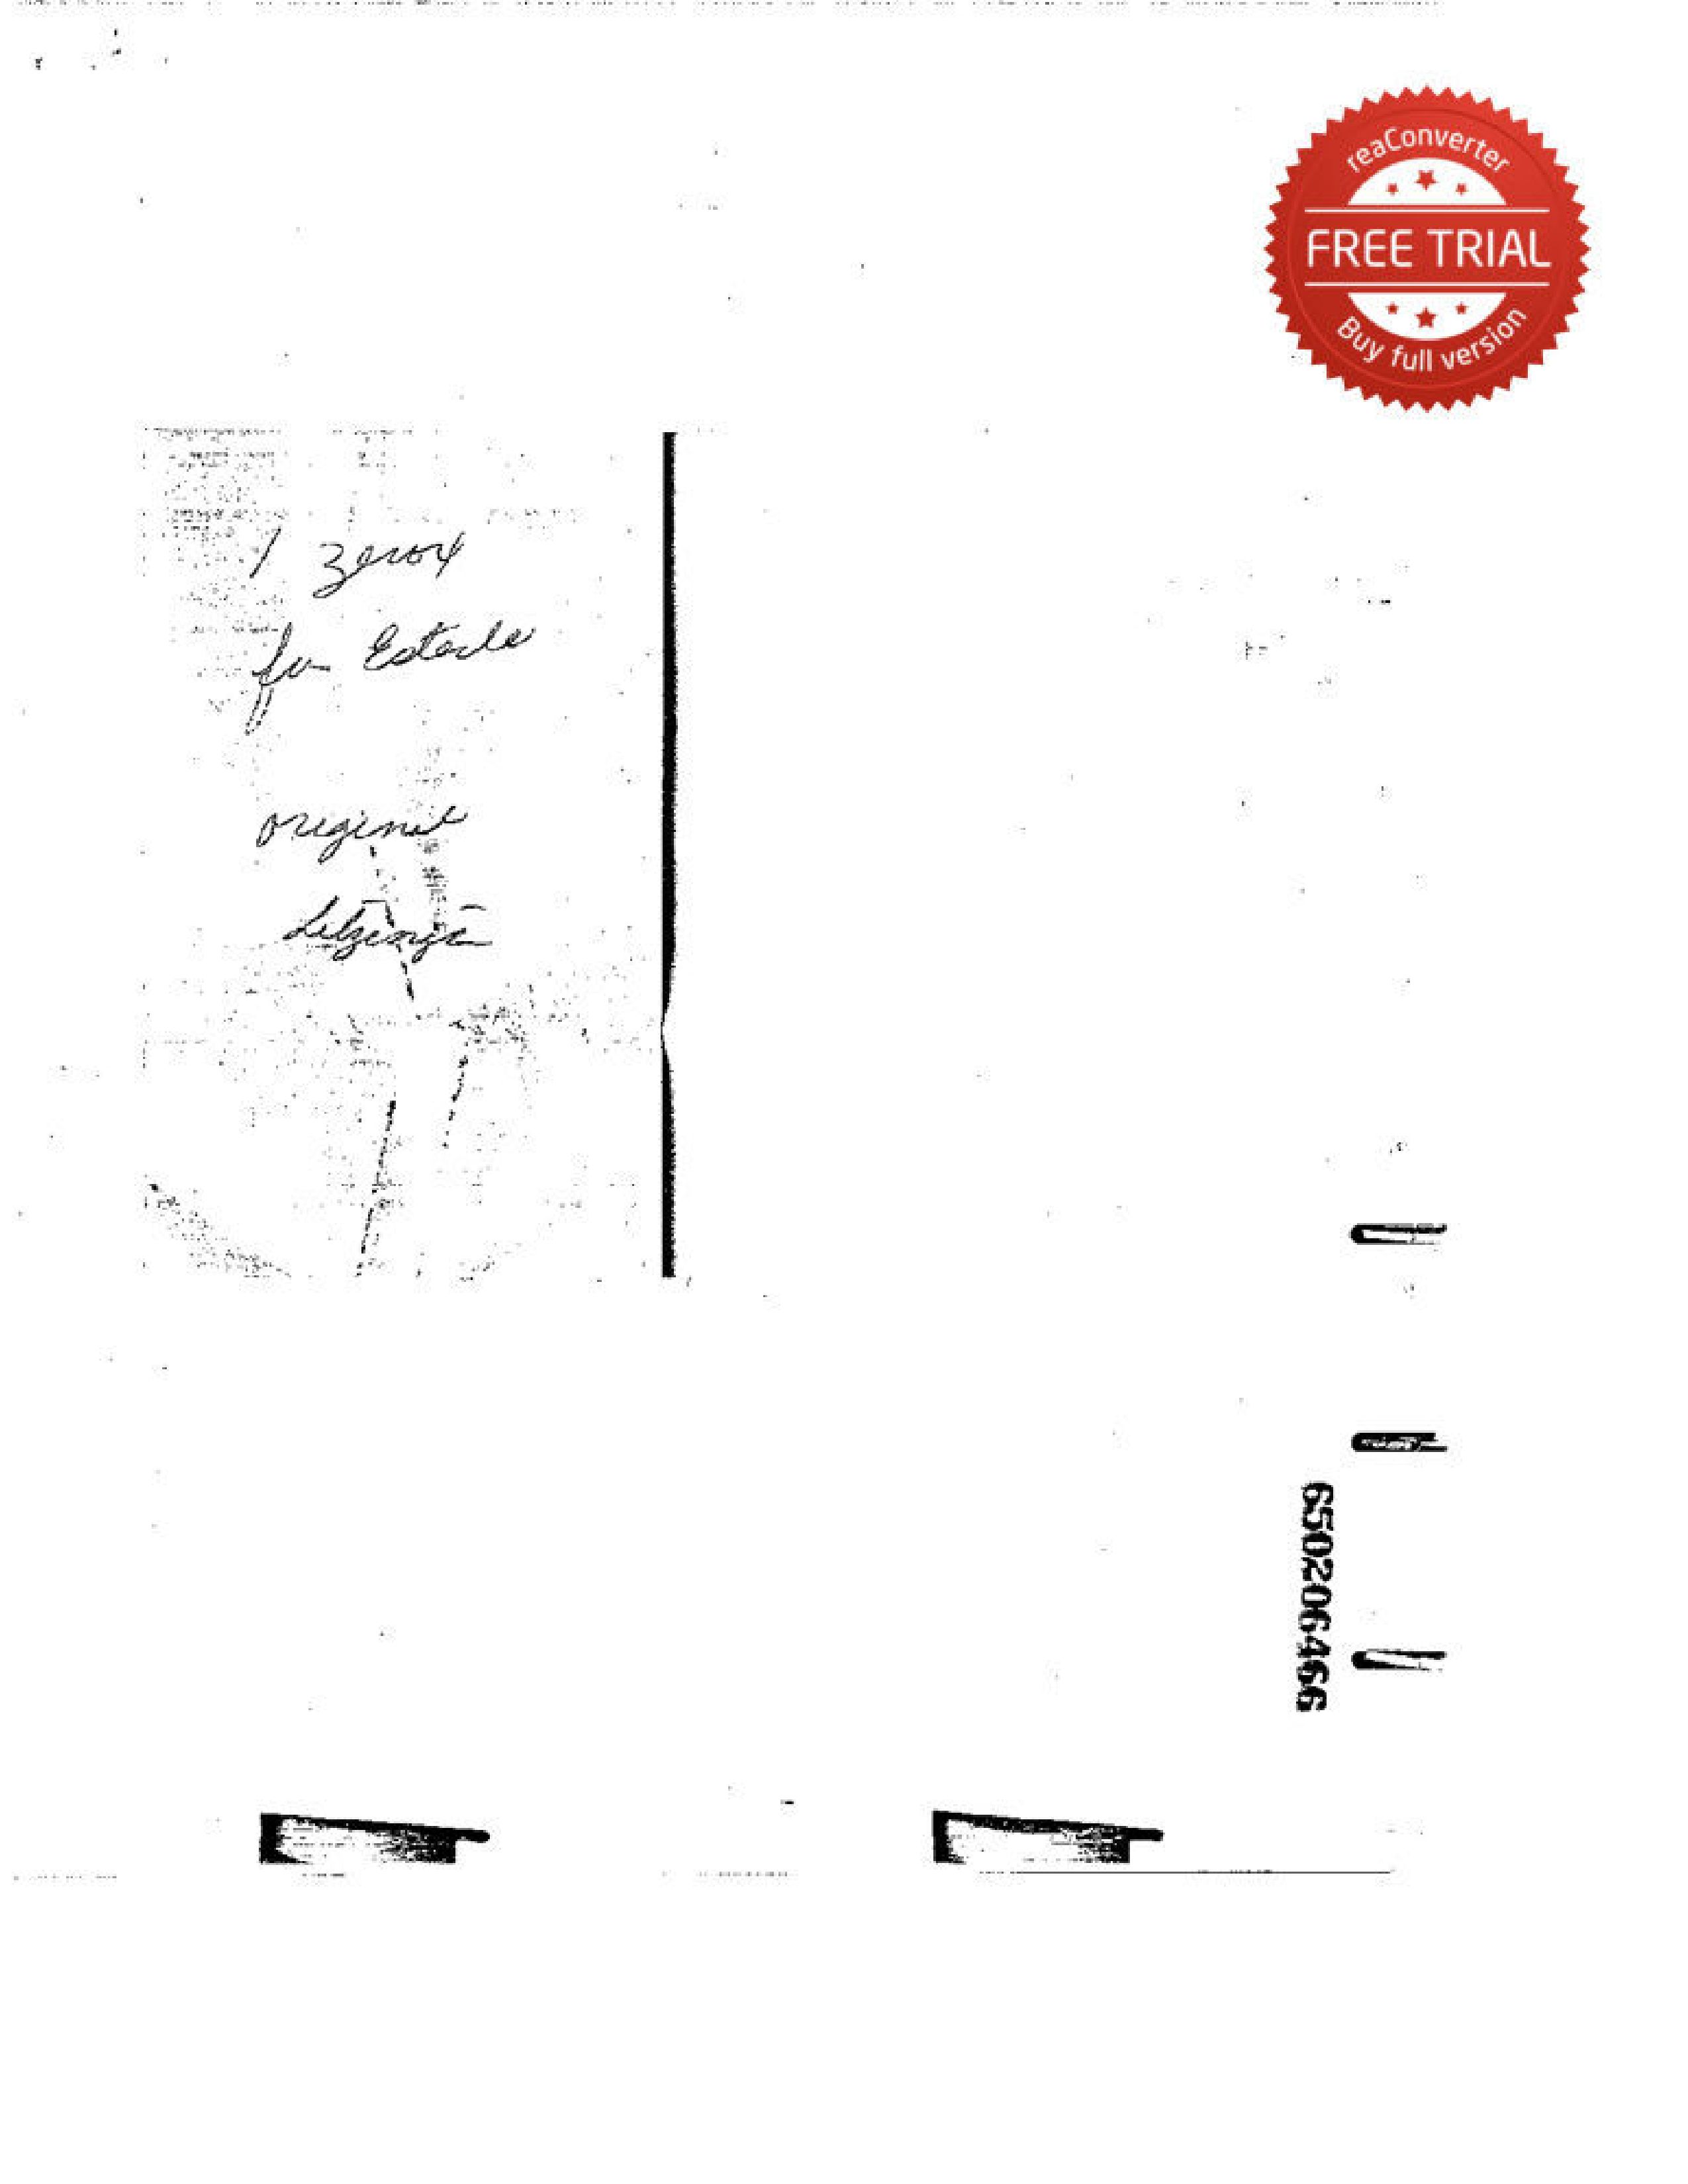 reaConverter
FREE TRIAL
Buy full version
1 zerox
for Esterle
original
650206466